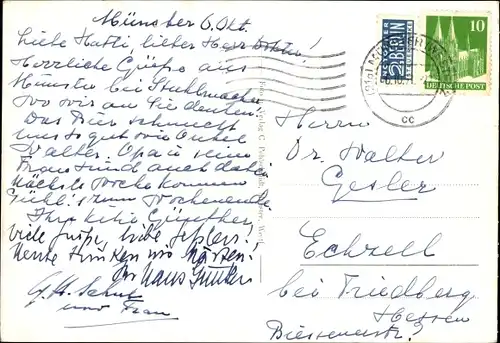 Münster 6. Okt.
Liebe Hatti, lieber Herr Doktor!
Herzliche Grüße aus
Münster bei Stuhlmacher
wo wir an Sie denken.
Das Bier schmeckt
uns so gut wie Onkel
Walter. Opa u. seine
Frau sind auch dabei
Nächste Woche kommen
zum Wochenende.
Ihre Günther
viele Grüße, liebe
Heute trinken wir
Ihr Hans Günther
und Frau
NOTOPFER
2 BERLIN
STEUERMARKE
10
DEUTSCHE POST
cc
Herrn
Dr. Walter
Gesler
Echzell
bei Friedberg
Hessen